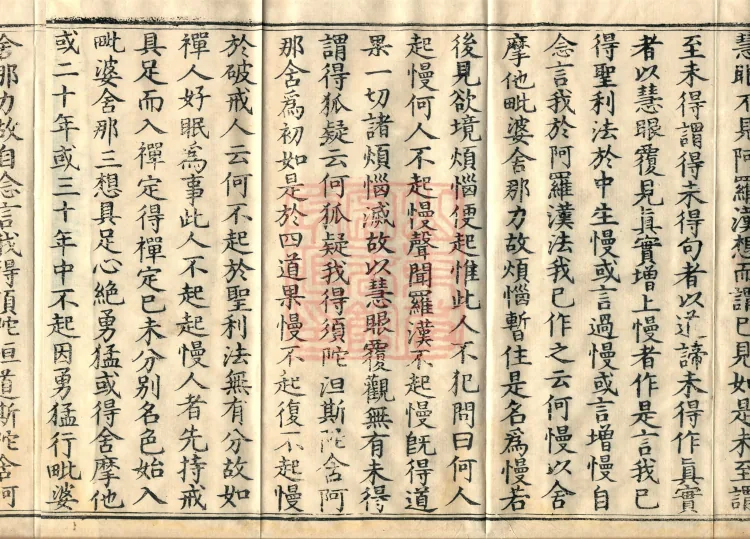 慧眼不見阿羅漢想而謂已見如是未至謂
至未得謂得未得句者以道諦未得作眞實
者以慧眼覆見眞實增上慢者作是言我已
得聖利法於中生慢或言過慢或言增慢自
念言我於阿羅漢法我已作之云何慢以舍
摩他毗婆舍那力故煩惱暫住是名爲慢若
後見欲境煩惱便起惟此人不犯問曰何人
起慢何人不起慢聲聞羅漢不起慢旣得道
果一切諸煩惱滅故以慧眼覆觀無有未得
謂得狐疑云何狐疑我得須陀洹斯陀舍阿
那舍爲初如是於四道果慢不起復不起慢
於破戒人云何不起於聖利法無有分故如
禪人好眠爲事此人不起起慢人者先持戒
具足而入禪定得禪定已未分別名色始入
毗婆舍那三想具足心絶勇猛或得舍摩他
或二十年或三十年中不起因勇猛行毗婆
舍那力故自念言我得須陀洹道斯陀舍阿